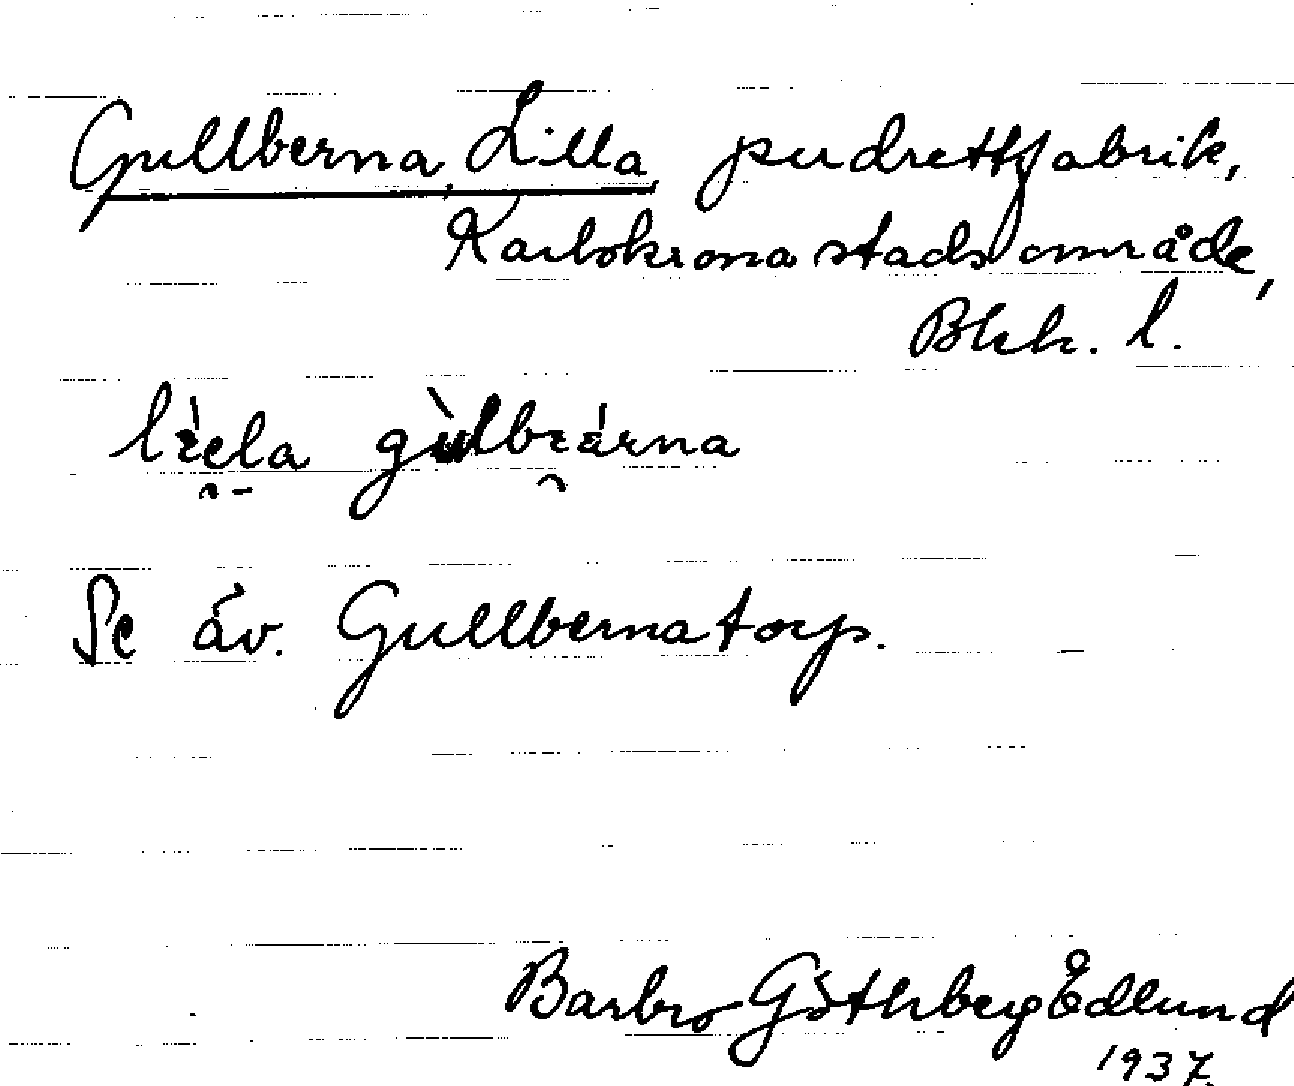 Gullberna, Lilla, pudrettfabrik,
Karlskrona stadsområde,
Blek. l.
Se äv. Gullbernatorp.
Barbro Göthberg Edlund
1937.